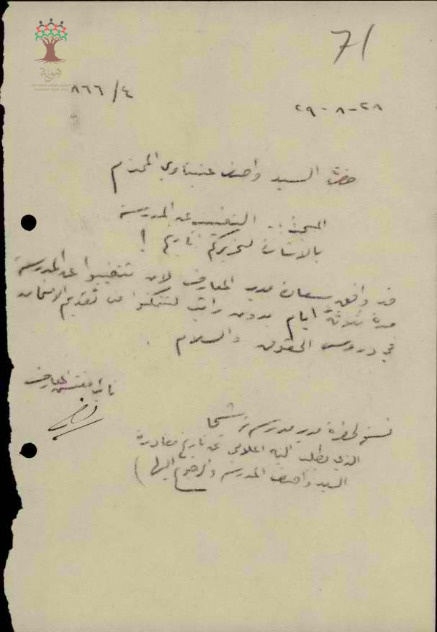 71
٨٦٦/٤
٢٨-٨-٢٩
حضرة السيد واصف عنبتاوي المحترم
المبحث :- التغيب عن المدرسة
بالاشارة لتحريركم تاريخ !
قد وافق سعادة مدير المعارف لان تتغيبوا عن المدرسة
مدة ثلاثة ايام بدون راتب لتتمكنوا من تقديم الامتحان
في دروس الحقوق والسلام
مفتش المعارف
نسخة لحضرة مدير مدرسة
الذي يطلب اليه اعلامي عن تاريخ مغادرة
السيد واصف المدرسة والرجوع اليها)